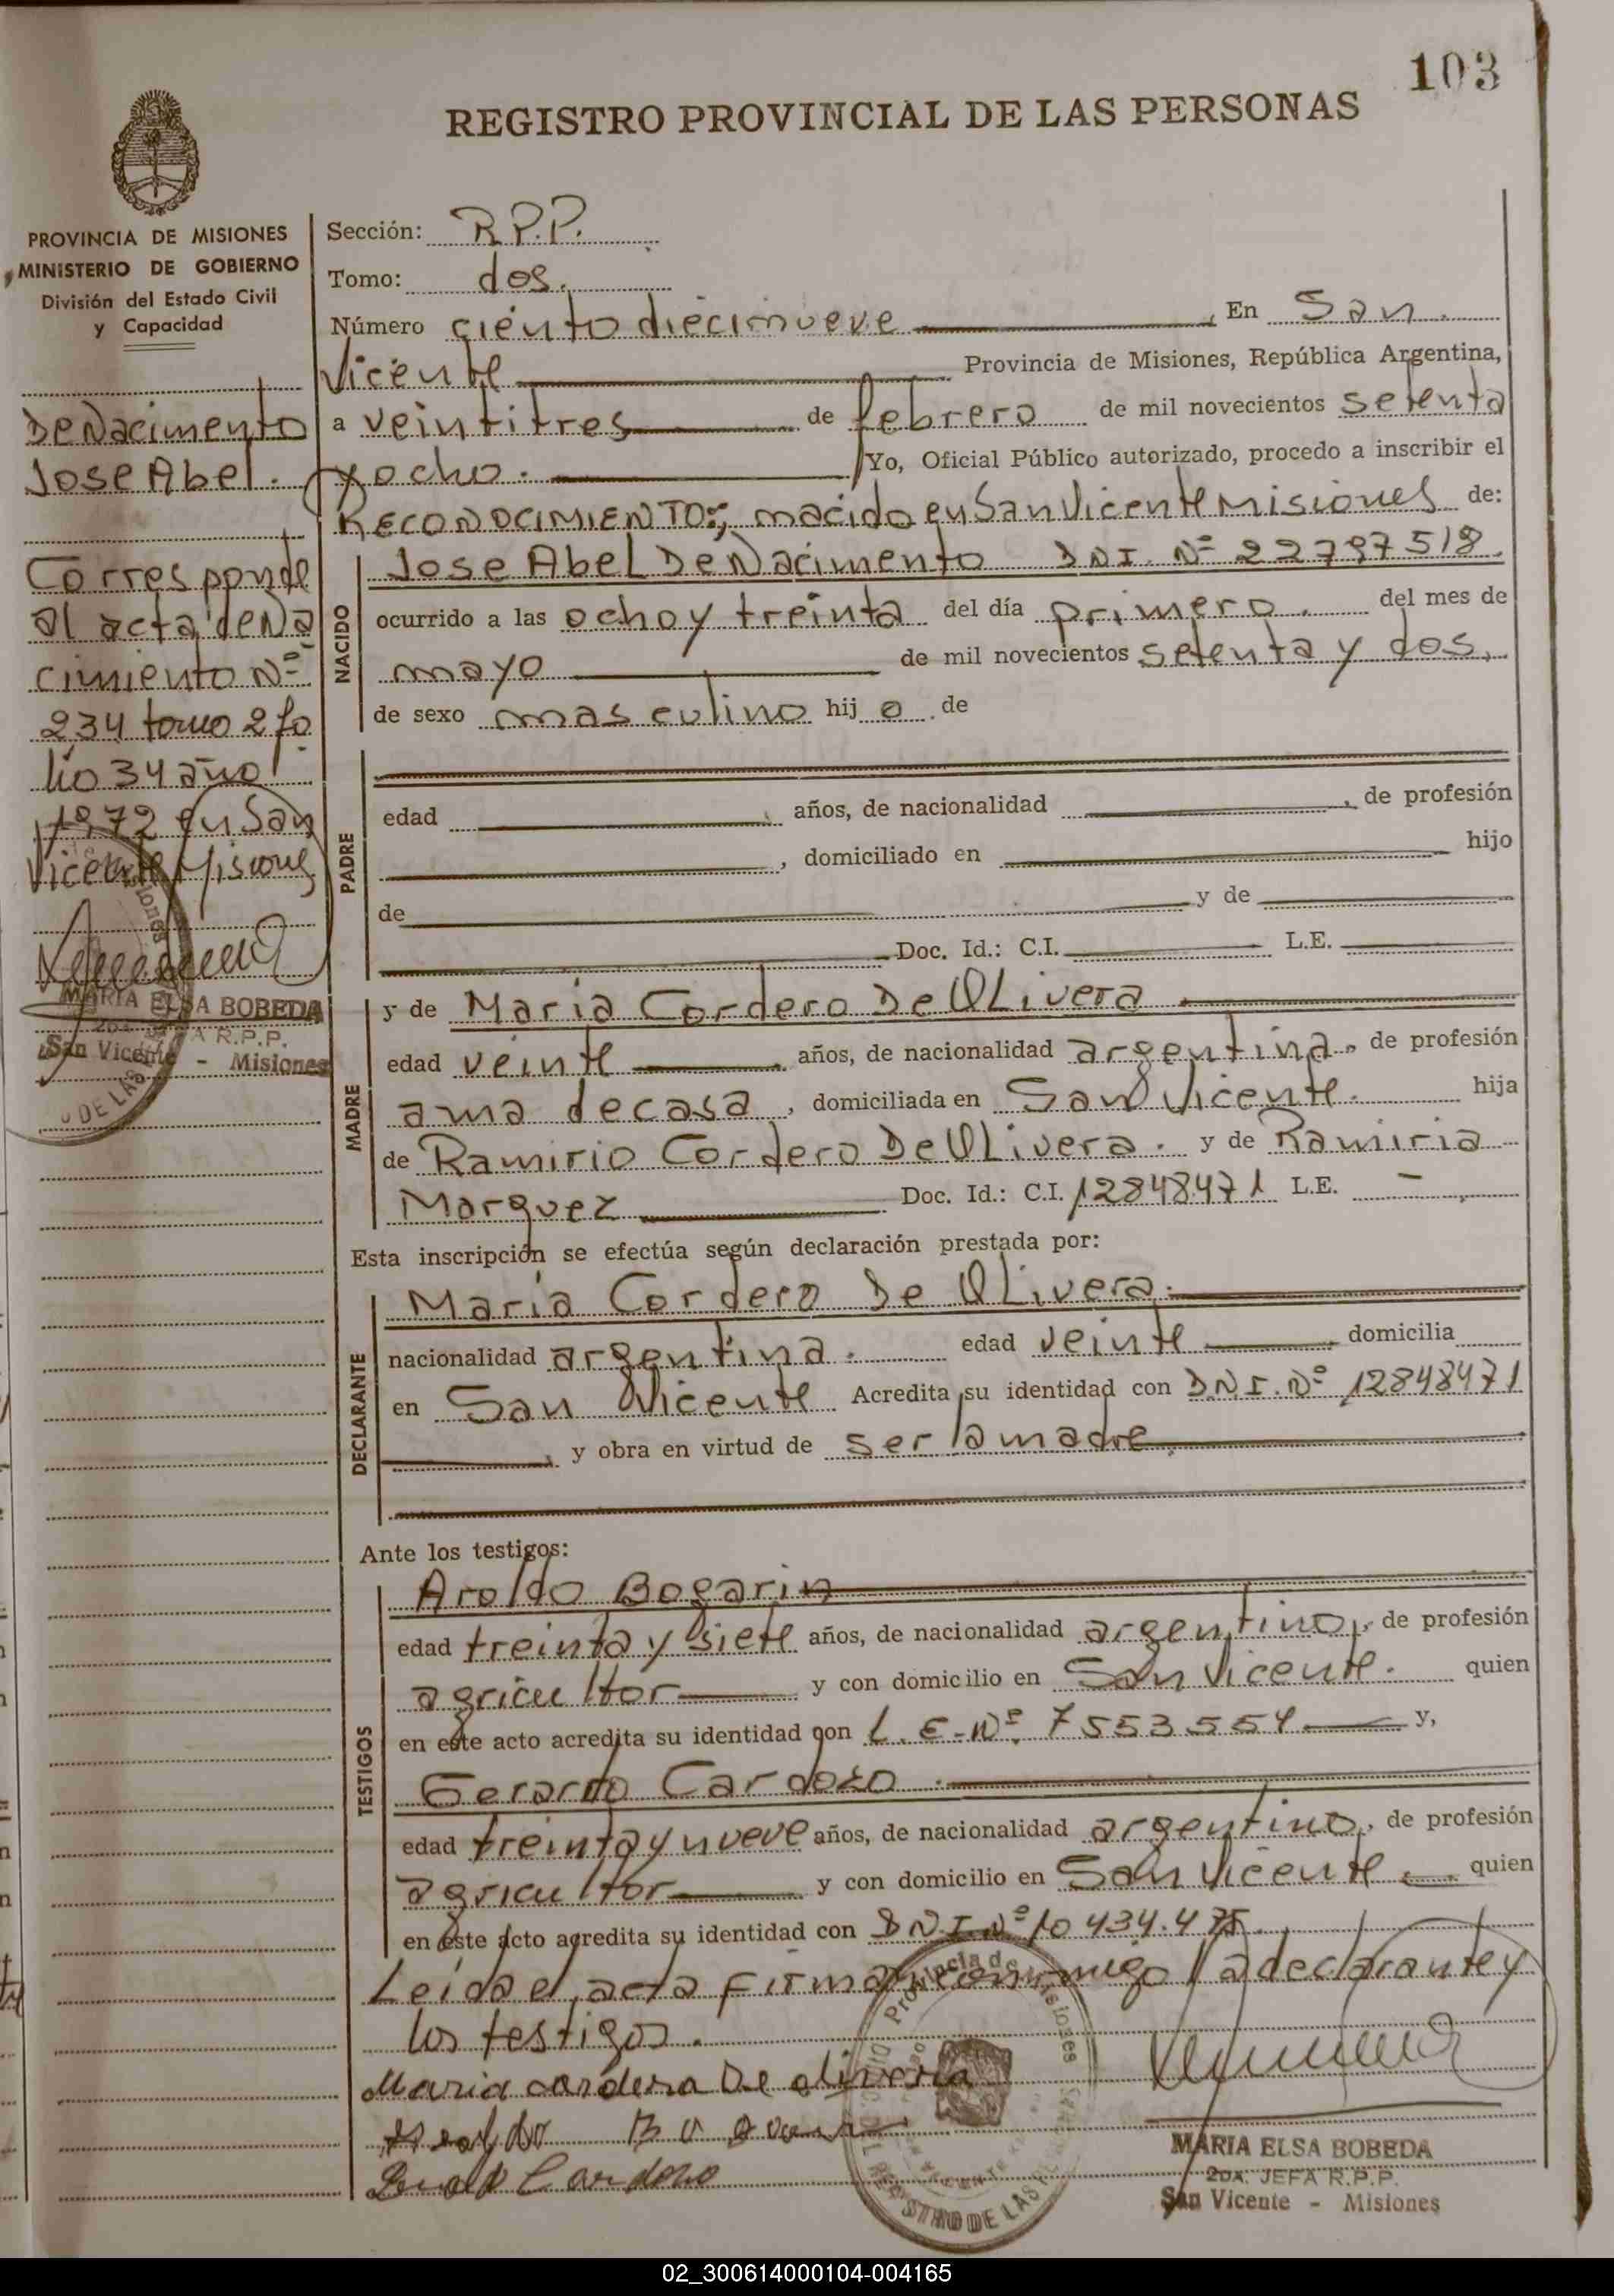 103
REGISTRO PROVINCIAL DE LAS PERSONAS
PROVINCIA DE MISIONES
MINISTERIO DE GOBIERNO
División del Estado Civil
y Capacidad
De Nacimento
Jose Abel.
Corresponde
al acta de Na
cimiento Nº
234 tomo 2 fo
lio 34 año
1972 en San
Vicente Misiones
MARIA ELSA BOBEDA
2DA. JEFA R.P.P.
San Vicente - Misiones
Sección: R.P.P.
Tomo: dos.
Número ciento diecinueve, En San
Vicente Provincia de Misiones, República Argentina,
a veintitres de febrero de mil novecientos setenta
y ocho. Yo, Oficial Público autorizado, procedo a inscribir el
RECONOCIMIENTO; nacido en San Vicente Misiones de:
NACIDO
Jose Abel De Nacimento DNI. Nº 22797518.
ocurrido a las ocho y treinta del día primero. del mes de
mayo de mil novecientos setenta y dos.
de sexo masculino hijo de
PADRE
edad , años, de nacionalidad , de profesión
, domiciliado en hijo
de y de
Doc. Id.: C.I. L.E.
MADRE
y de Maria Cordero De OLivera
edad veinte años, de nacionalidad argentina, de profesión
ama de casa, domiciliada en San Vicente. hija
de Ramirio Cordero De OLivera. y de Ramiria
Marquez Doc. Id.: C.I. 12848471 L.E. -
Esta inscripción se efectúa según declaración prestada por:
DECLARANTE
Maria Cordero De OLivera.
nacionalidad argentina. edad veinte domicilia
en San Vicente Acredita su identidad con D.N.I. Nº 12848471
, y obra en virtud de ser la madre.
Ante los testigos:
TESTIGOS
Aroldo Bogarin
edad treinta y siete años, de nacionalidad argentino, de profesión
agricultor y con domicilio en San Vicente. quien
en este acto acredita su identidad con L.E-Nº. 7553554 y,
Gerardo Cardozo.
edad treinta y nueve años, de nacionalidad argentino, de profesión
agricultor y con domicilio en San Vicente. quien
en este acto acredita su identidad con DNI Nº 10434.475.
Leida el acta firman conmigo la declarante y
los testigos.
Maria cordera De olivera
Cardozo
Provincia de Misiones
MARIA ELSA BOBEDA
2DA. JEFA R.P.P.
San Vicente - Misiones
02_300614000104-004165